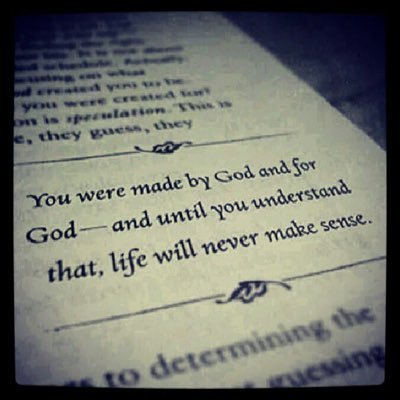 and schedule. Actually
focusing on what
created you to be.
you were created for?
on is speculation. This is
e, they guess, they
You were made by God and for
God—and until you understand
that, life will never make sense.
to determining the
guessing